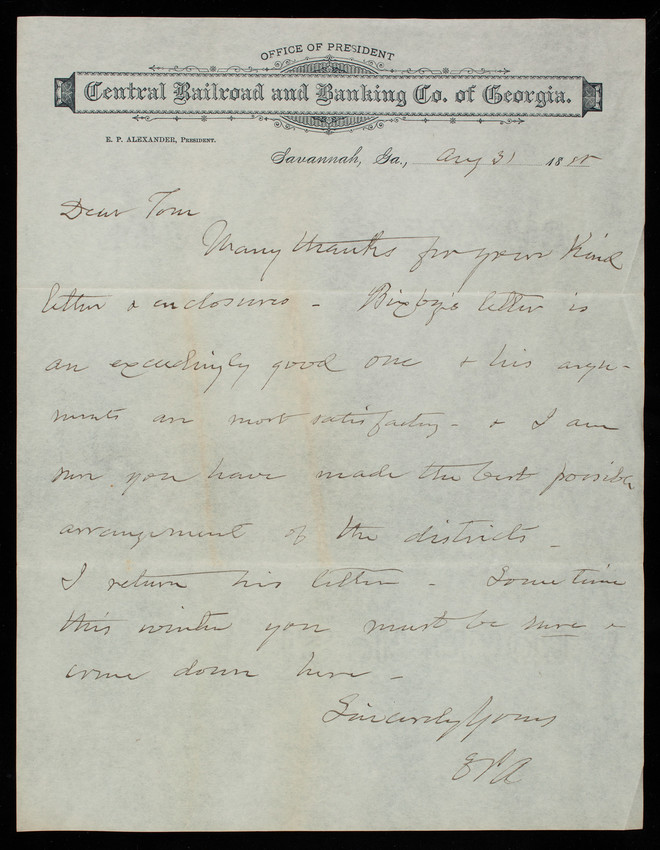 OFFICE OF PRESIDENT
Central Railroad and Banking Co. of Georgia.
E. P. ALEXANDER, PRESIDENT.
Savannah, Ga., Aug 31 1888
Dear Tom
Many thanks for your Kind
letter & enclosures - Bixby's letter is
an exceedingly good one & his argu-
ments are most satisfactory - & I am
sure you have made the best possible
arrangement of the districts -
I return his letter - Some time
this winter you must be sure &
come down here -
Sincerely Yours
EPA